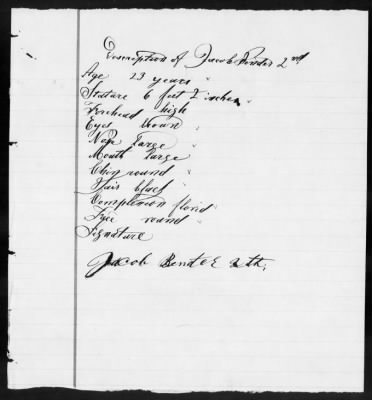 Description of Jacob Binder 2nd
Age 23 years "
Stature 6 feet 2 inches
Forehead high
Eyes brown "
Nose large "
Mouth large
Chin round "
Hair black "
Complexion florid "
Face round "
Signature
Jacob Bender 2th.